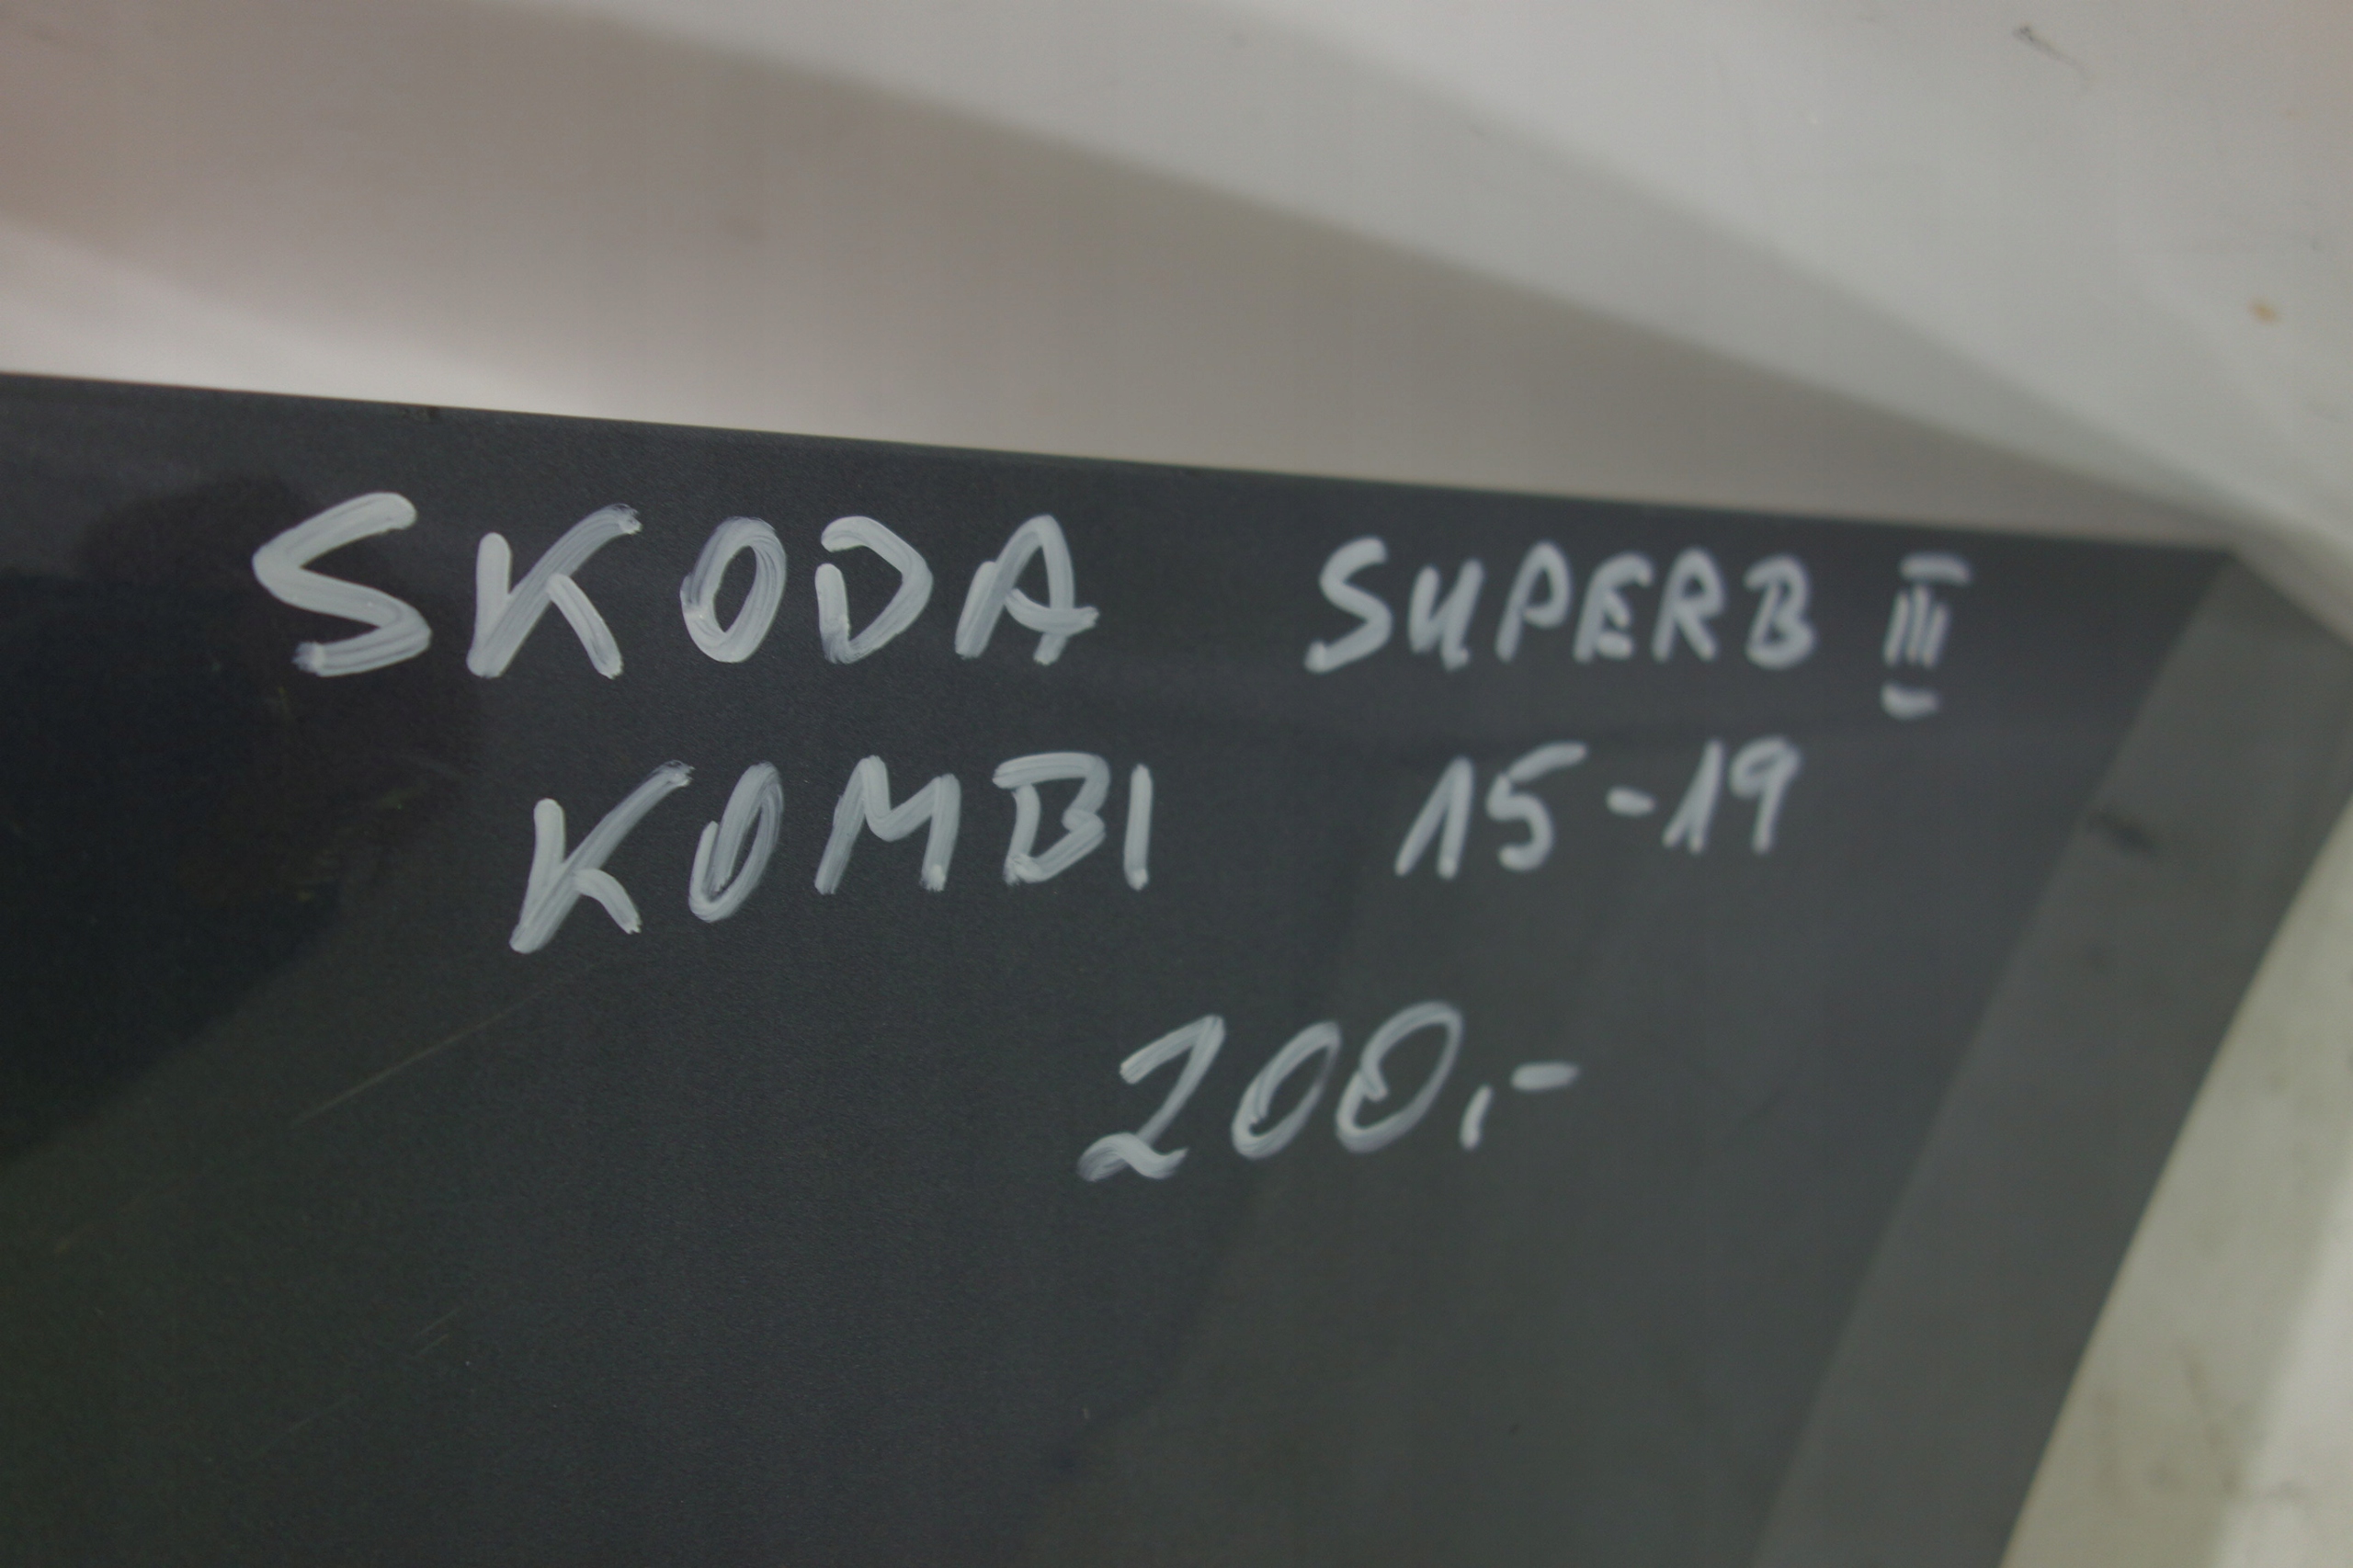 SKODA SUPERB III
KOMBI 15-19
200,-